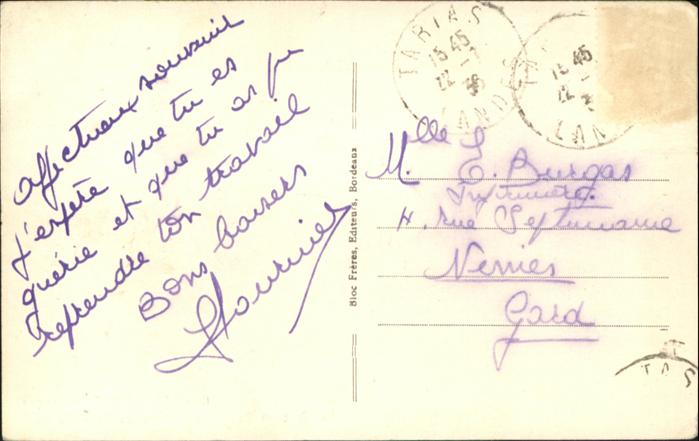 affectueux souvenir
j'espère que tu es
guérie et que tu as pu
reprendre ton travail
Bons baisers
Bloc Frères, Editeurs, Bordeaux
TARTAS
15 45
22
LANDES
15 45
22
LAN
Mlle E. Burgas
4. rue Septimanie
Nimes
Gard
TAS